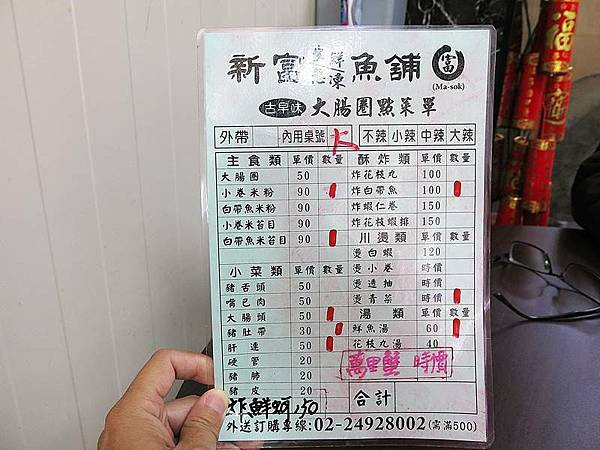 新富 生鮮冷凍 魚舖 富
(Ma-sok)
古早味 大腸圈點菜單
外帶 內用桌號 不辣 小辣 中辣 大辣
主食類 單價 數量 酥炸類 單價 數量
大腸圈 50 炸花枝丸 100
小卷米粉 90 炸白帶魚 100
白帶魚米粉 90 炸蝦仁卷 150
小卷米苔目 90 炸花枝蝦排 150
白帶魚米苔目 90 川燙類 單價 數量
燙白蝦 120
小菜類 單價 數量 燙小卷 時價
豬舌頭 50 燙透抽 時價
嘴己肉 50 燙青菜 時價
大腸頭 50 湯類 單價 數量
豬肚帶 30 鮮魚湯 60
肝連 50 花枝丸湯 40
硬管 20 萬里蟹 時價
豬肺 20
豬皮 20 合計
炸鮮蚵150
外送訂購專線:02-24928002(需滿500)
福